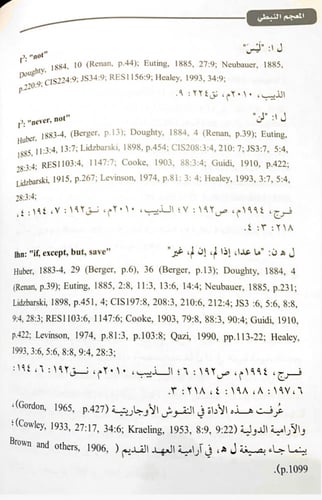 المعجم النبطي
ل ا: "لَيْسَ"
l': "not"
Doughty, 1884, 10 (Renan, p.44); Euting, 1885, 27:9; Neubauer, 1885,
p.220:9; CIS224:9; JS34:9; RES1156:9; Healey, 1993, 34:9;
الذييب، ٢٠١٠م، نق٢٢٤: ٩.
ل ا: "لن"
l': "never, not"
Huber, 1883-4, (Berger, p.13); Doughty, 1884, 4 (Renan, p.39); Euting,
1885, 11:3:4, 13:7; Lidzbarski, 1898, p.454; CIS208:3:4, 210: 7; JS3:7, 5:4,
28:3:4; RES1103:4, 1147:7; Cooke, 1903, 88:3:4; Guidi, 1910, p.422;
Lidzbarski, 1915, p.267; Levinson, 1974, p.81: 3: 4; Healey, 1993, 3:7, 5:4,
28:3:4;
فرج، ١٩٩٤م، ص١٩٢: ٧؛ الذييب، ٢٠١٠م، نق١٩٢: ٧، ١٩٤: ٤،
٢١٨: ٣: ٤.
ل ه ن: "ما عدا، إذا لم، إن لم، غير"
lhn: "if, except, but, save"
Huber, 1883-4, 29 (Berger, p.6), 36 (Berger, p.13); Doughty, 1884, 4
(Renan, p.39); Euting, 1885, 2:8, 11:3, 13:6, 14:4; Neubauer, 1885, p.231;
Lidzbarski, 1898, p.451, 4; CIS197:8, 208:3, 210:6, 212:4; JS3 :6, 5:6, 8:8,
9:4, 28:3; RES1103:6, 1147:6; Cooke, 1903, 79:8, 88:3, 90:4; Guidi, 1910,
p.422; Levinson, 1974, p.81:3, p.103:8; Qazi, 1990, pp.113-22; Healey,
1993, 3:6, 5:6, 8:8, 9:4, 28:3;
فرج، ١٩٩٤م، ص١٩٢: ٦؛ الذييب، ٢٠١٠م، نق١٩٢: ٦، ١٩٤:
٦، ١٩٧: ٨، ١٩٨: ٤، ٢١٨: ٣.
عُرفت هذه الأداة في النقوش الأوجاريتية (Gordon, 1965, p.427)،
والآرامية الدولية (Cowley, 1933, 27:17, 34:6; Kraeling, 1953, 8:9, 9:22)؛
بينما جاء بصيغة ل ه، في آرامية العهد القديم (Brown and others, 1906,
p.1099).